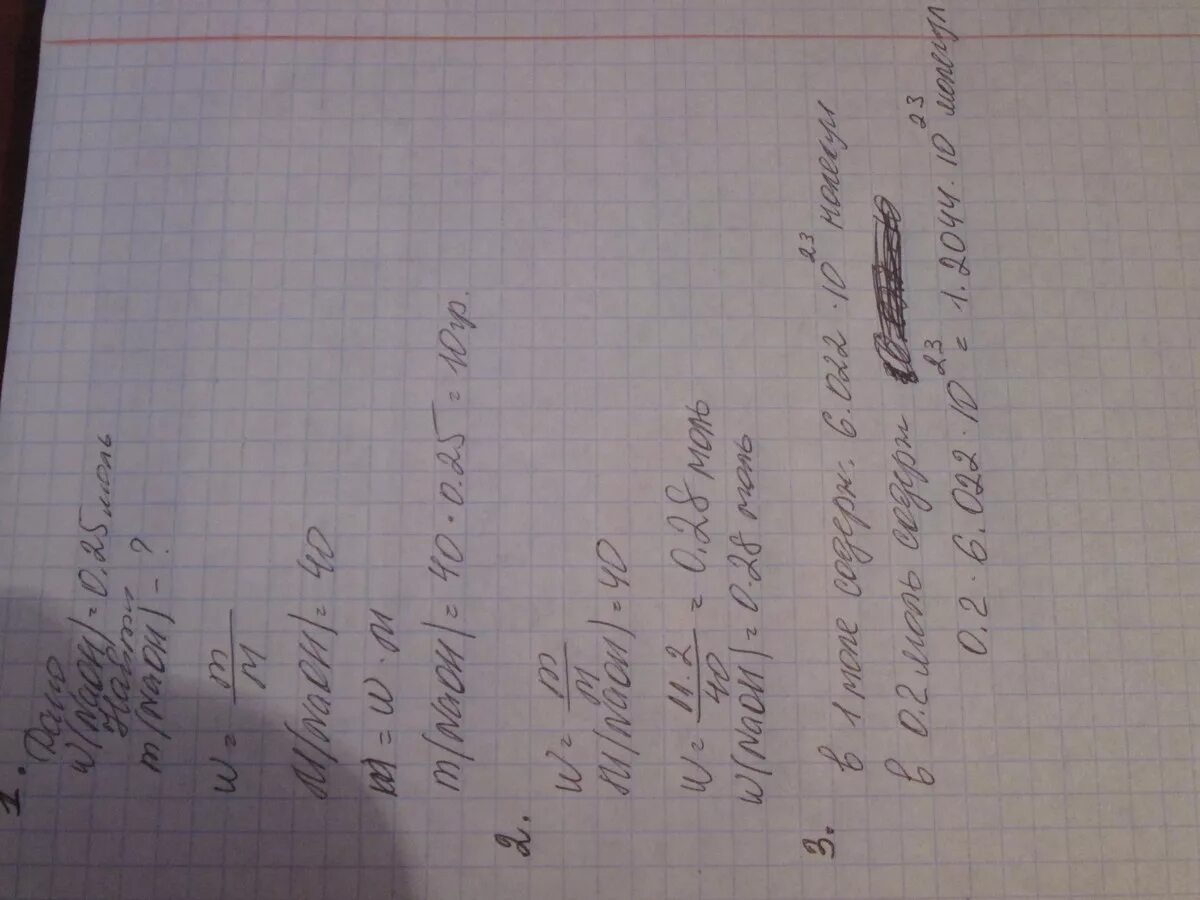 1. Дано
W(NaOH)=0.25 моль
Найти
m(NaOH)-?
W = m/M
M(NaOH)=40
m = W·M
m(NaOH)=40·0.25=10гр.
2. W= m/M
M(NaOH)=40
W= 11.2/40 = 0.28 моль
W(NaOH)=0.28 моль
3. в 1 моле содерж. 6.022·10²³ молекул
в 0.2 моль содерж
0.2·6.022·10²³=1.2044·10²³ молекул